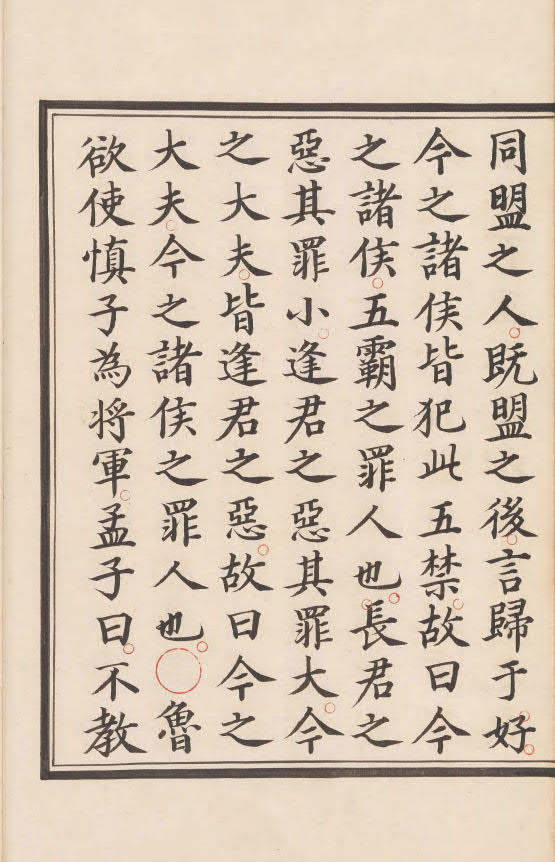 同盟之人既盟之後言歸于好
今之諸侯皆犯此五禁故曰今
之諸侯五霸之罪人也長君之
惡其罪小逢君之惡其罪大今
之大夫皆逢君之惡故曰今之
大夫今之諸侯之罪人也○魯
欲使慎子為將軍孟子曰不教